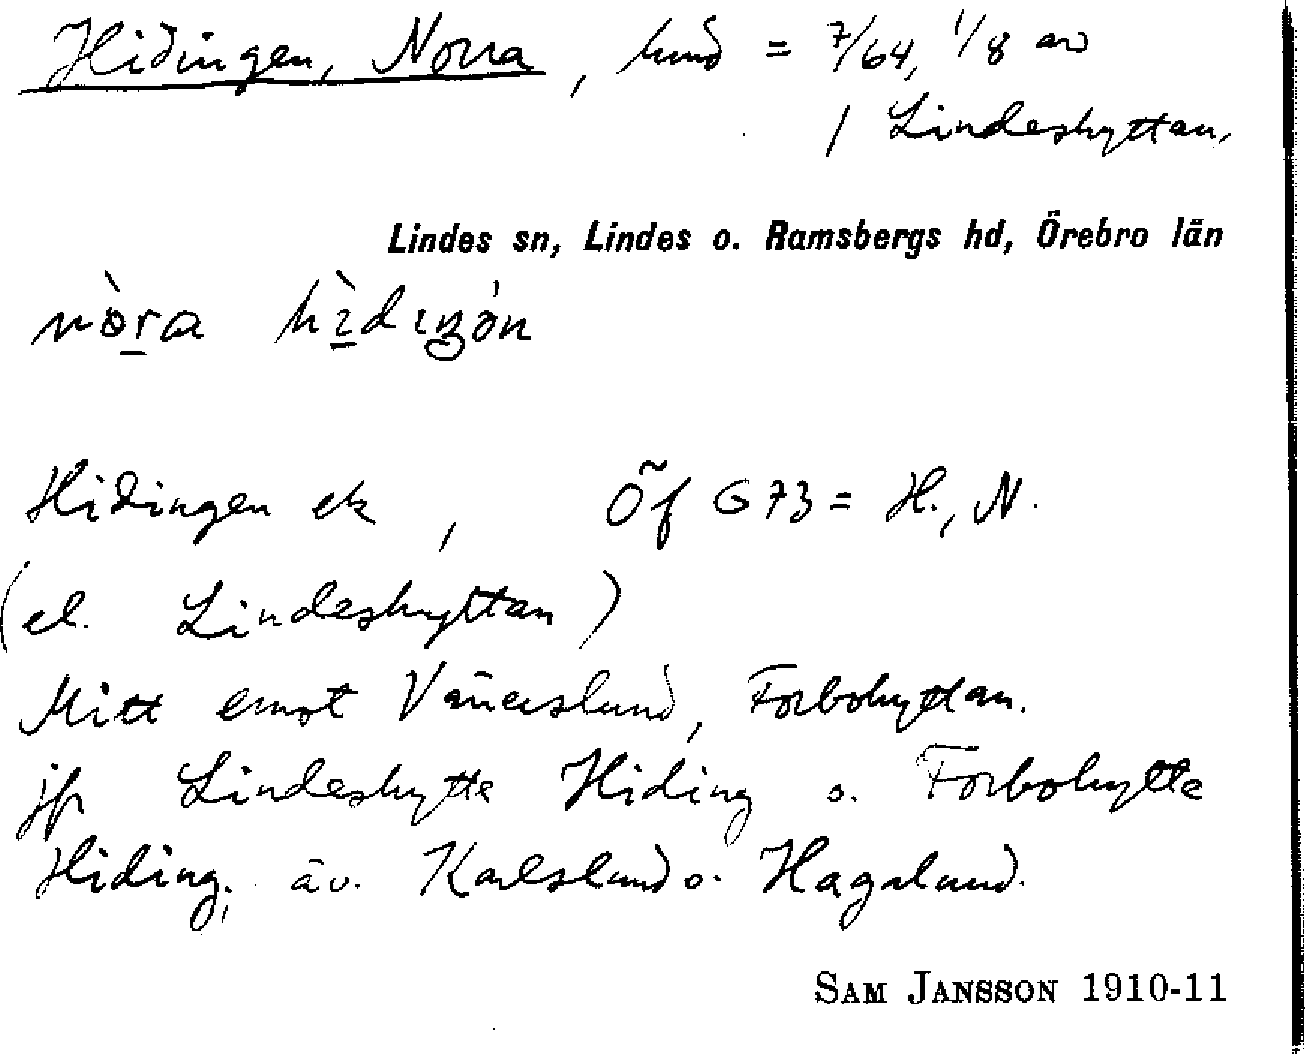 Hidingen, Norra, hmd = 7/64, 1/8 av
1 Lindeshyttan,
Lindes sn, Lindes o. Ramsbergs hd, Örebro län
nòra hìdiŋón
Hidingen ek, Öf G73 = H., N.
(el. Lindeshyttan)
Mitt emot Vänerslund, Forbohyttan.
jfr Lindeshytte Hiding o. Forbohytte
Hiding, äv. Karlslund o. Hagalund.
SAM JANSSON 1910-11